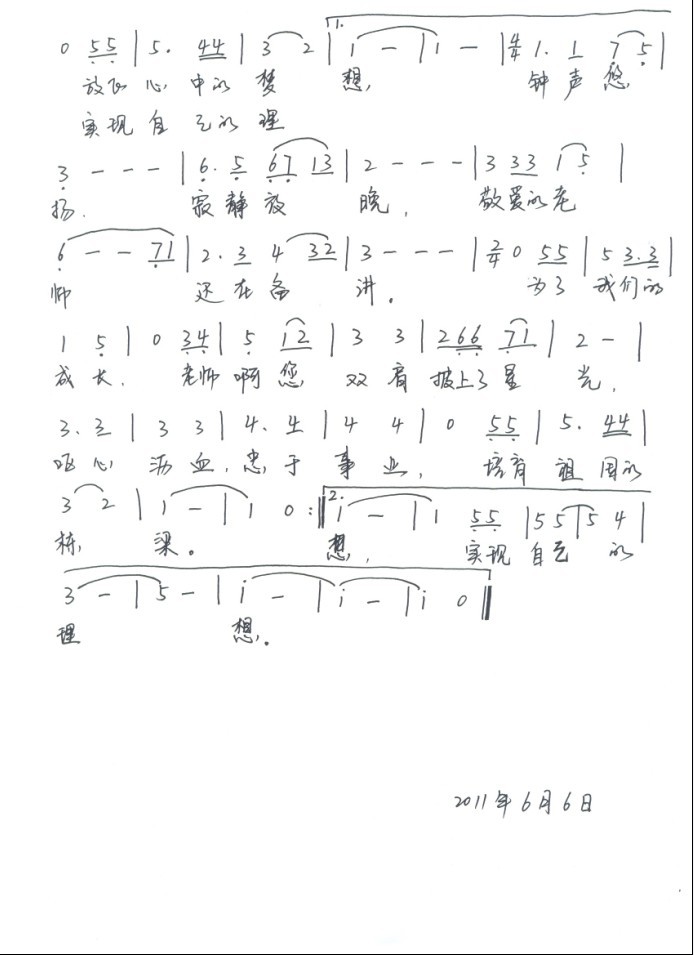 1.
0 55 | 5. 44 | 3 2 | 1 - | 1 - | 4/4 1. 1 7 5 |
放飞心中的梦 想, 钟声悠
实现自己的理
3 - - - | 6. 5 67 13 | 2 - - - | 3 33 1 5 |
扬. 寂静夜 晚, 敬爱的老
6 - - 71 | 2. 3 4 32 | 3 - - - | 2/4 0 55 | 5 3.3 |
师 还在备 讲。 为了 我们的
1 5 | 0 34 | 5 12 | 3 3 | 266 71 | 2 - |
成长, 老师啊您 双肩 披上了星 光,
3. 3 | 3 3 | 4. 4 | 4 4 | 0 55 | 5. 44 |
呕心 沥血, 忠于 事业, 培育祖国的
3 2 | 1 - | 1 0 :‖ 2. i - | 1 55 | 55 5 4 |
栋 梁。 想, 实现自己 的
3 - | 5 - | i - | i - | i 0 ‖
理 想。
2011年6月6日